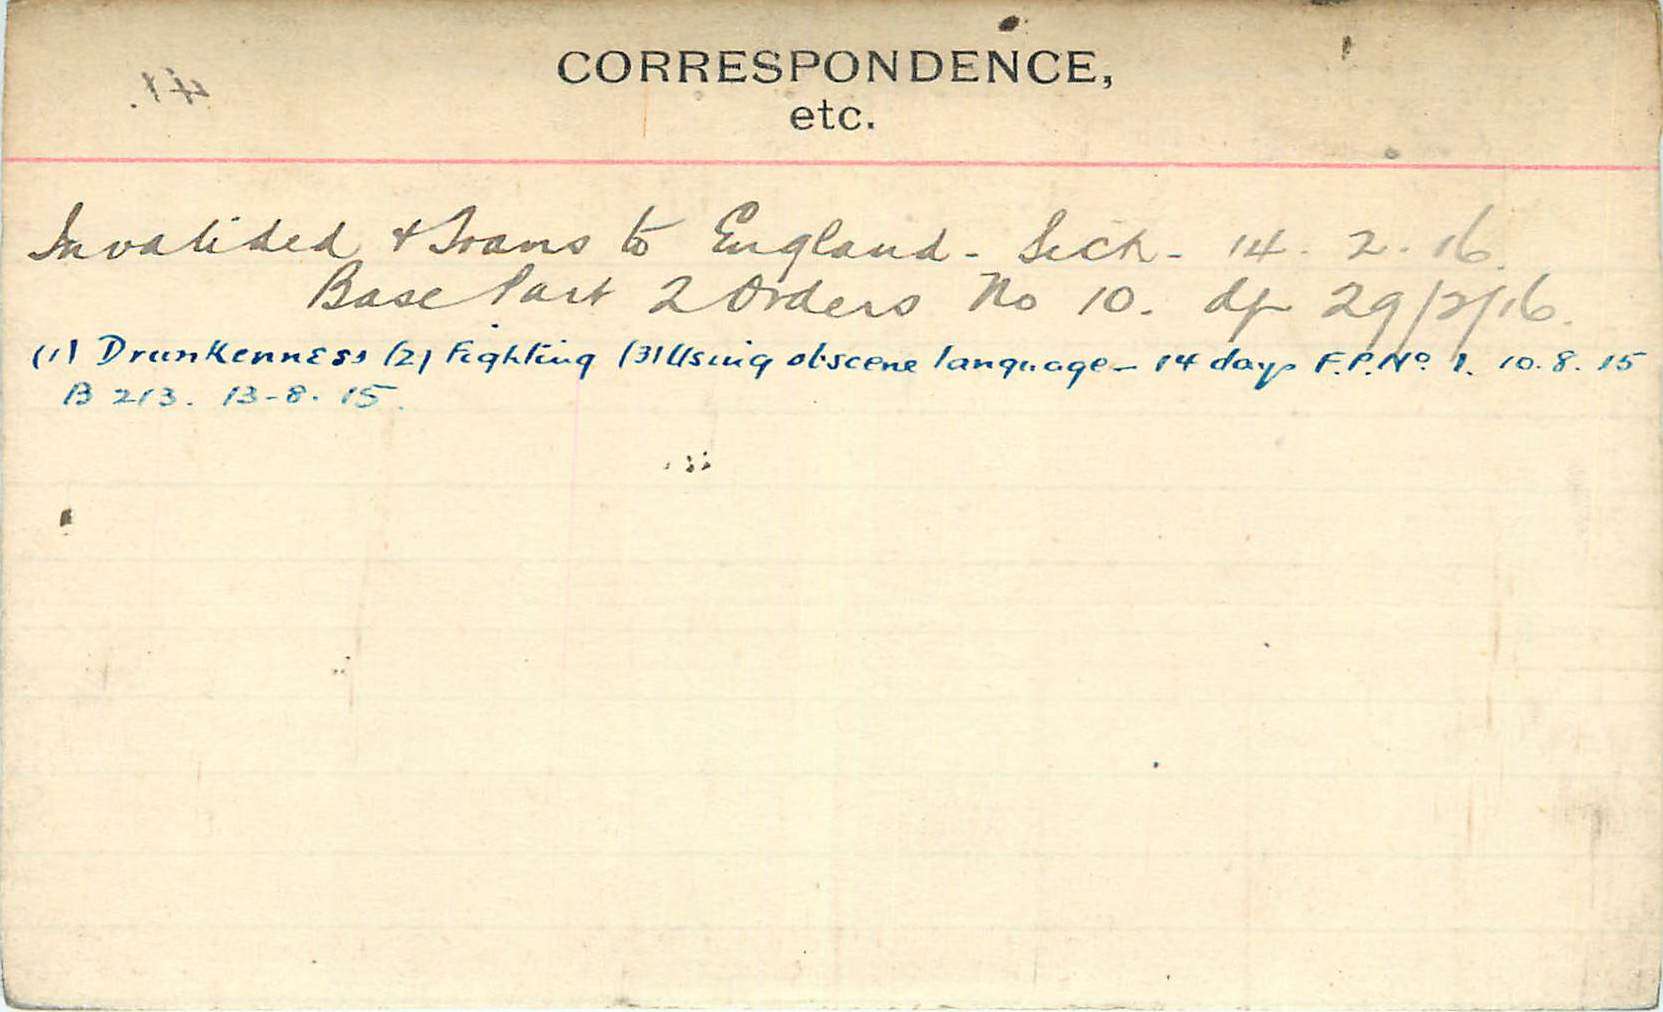 CORRESPONDENCE,
etc.
Invalided & Trans to England - Sick - 14. 2. 16.
Base Part 2 Orders No 10. df 29/2/16.
(1) Drunkenness (2) Fighting (3) Using obscene language - 14 days F.P. No. 1. 10. 8. 15
B 213. 13-8. 15.